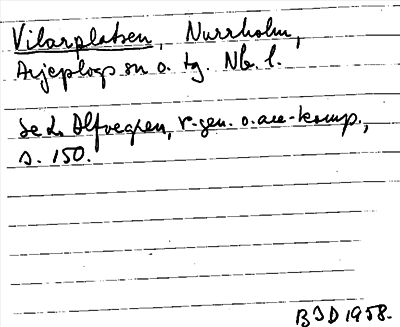 Vilarplatsen, Nurrholm,
Arjeplogs sn o. tg. Nb. l.
Se L. Alfvegren, r-gen. o. are-komp.,
s. 150.
BJD 1958.